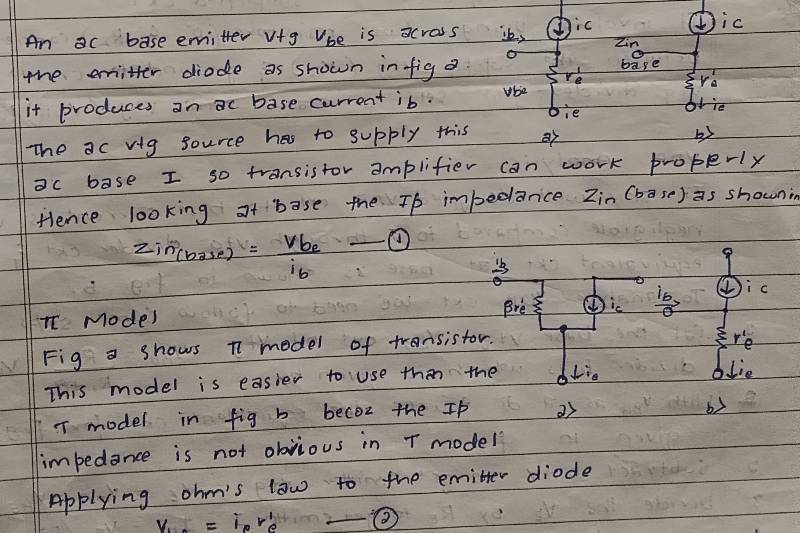 An ac base emitter vtg Vbe is across
the emitter diode as shown in fig a
it produces an ac base current ib.
The ac vtg source has to supply this
ac base I so transistor amplifier can work properly
Hence looking at base the Ip impedance Zin (base) as shown in
Zin(base) = Vbe / ib — ①
ib
ic
r'e
Vbe
ie
a>
ic
Zin
base
r'e
ie
b>
π Model
Fig a shows π model of transistor.
This model is easier to use than the
T model in fig b becoz the Ip
impedance is not obvious in T model
Applying ohm's law to the emitter diode
= ie r'e — ②
ib
βr'e
ic
ie
a>
ib
ic
r'e
ie
b>